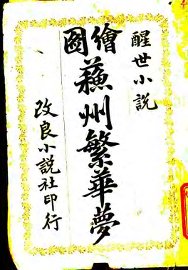 醒世小説
繪圖
蘇州繁華夢
改良小說社印行